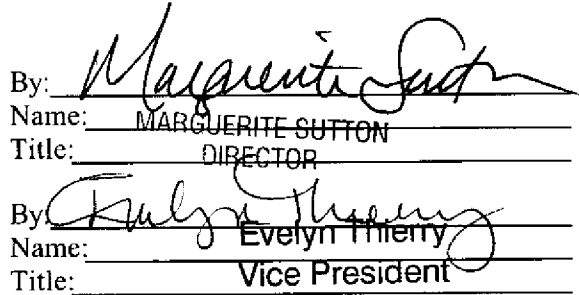 By: Marguerite Sutton
Name: MARGUERITE SUTTON
Title: DIRECTOR
By: Evelyn Thierry
Name: Evelyn Thierry
Title: Vice President